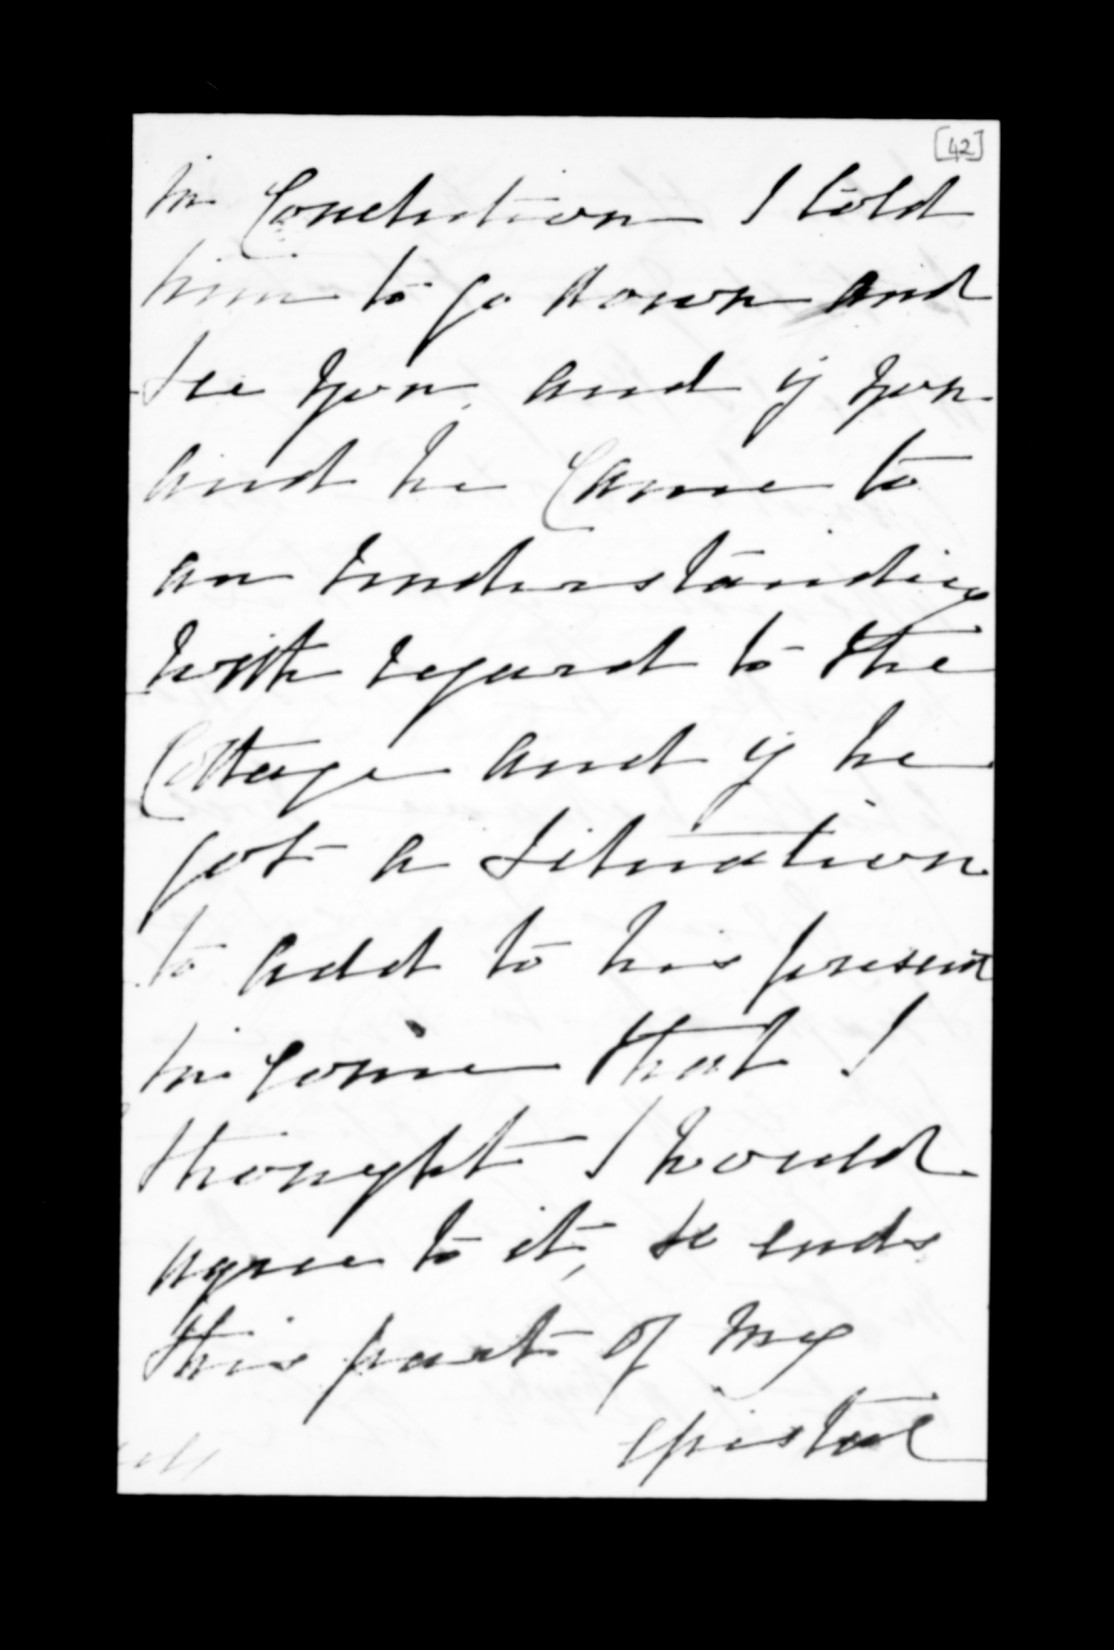 [42]
in Conclusion I told
him to go down and
see you, and if you
and he Came to
an understanding
with regard to the
Cottage and if he
got a situation
to add to his present
income that I
thought I would
agree to it, so ends
this part of my
epistol